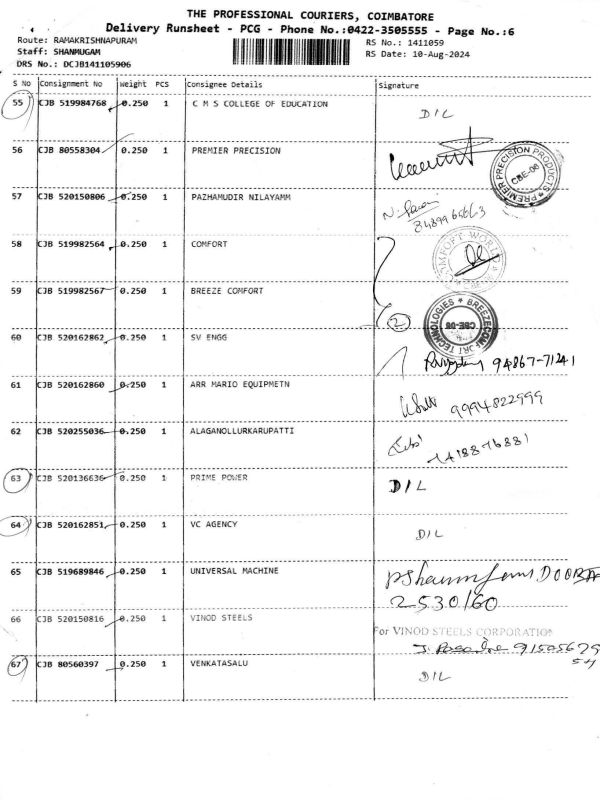 THE PROFESSIONAL COURIERS, COIMBATORE
Delivery Runsheet - PCG - Phone No.:0422-3505555 - Page No.:6
Route: RAMAKRISHNAPURAM
RS No.: 1411059
Staff: SHANMUGAM
RS Date: 10-Aug-2024
DRS No.: DCJB141105906
S No Consignment No Weight PCS Consignee Details Signature
55 CJB 519984768 0.250 1 C M S COLLEGE OF EDUCATION D/L
56 CJB 80558304 0.250 1 PREMIER PRECISION
PREMIER PRECISION PRODUCTS
CBE-06
57 CJB 520150806 0.250 1 PAZHAMUDIR NILAYAMM
58 CJB 519982564 0.250 1 COMFORT
COMFORT WORLD
59 CJB 519982567 0.250 1 BREEZE COMFORT
2
BREEZECOMFORT TECHNOLOGIES
CBE-06
60 CJB 520162862 0.250 1 SV ENGG
94867-71241
61 CJB 520162860 0.250 1 ARR MARIO EQUIPMETN
9994822999
62 CJB 520255036 0.250 1 ALAGANOLLURKARUPATTI
63 CJB 520136636 0.250 1 PRIME POWER D/L
64 CJB 520162851 0.250 1 VC AGENCY D/L
65 CJB 519689846 0.250 1 UNIVERSAL MACHINE
2530/60
66 CJB 520150816 0.250 1 VINOD STEELS
For VINOD STEELS CORPORATION
67 CJB 80560397 0.250 1 VENKATASALU D/L